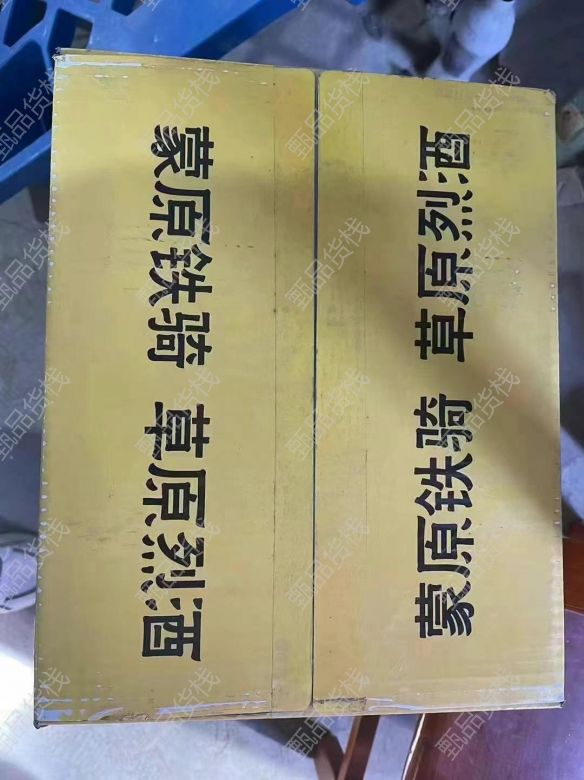 蒙原铁骑 草原烈酒
蒙原铁骑 草原烈酒
甄品货栈